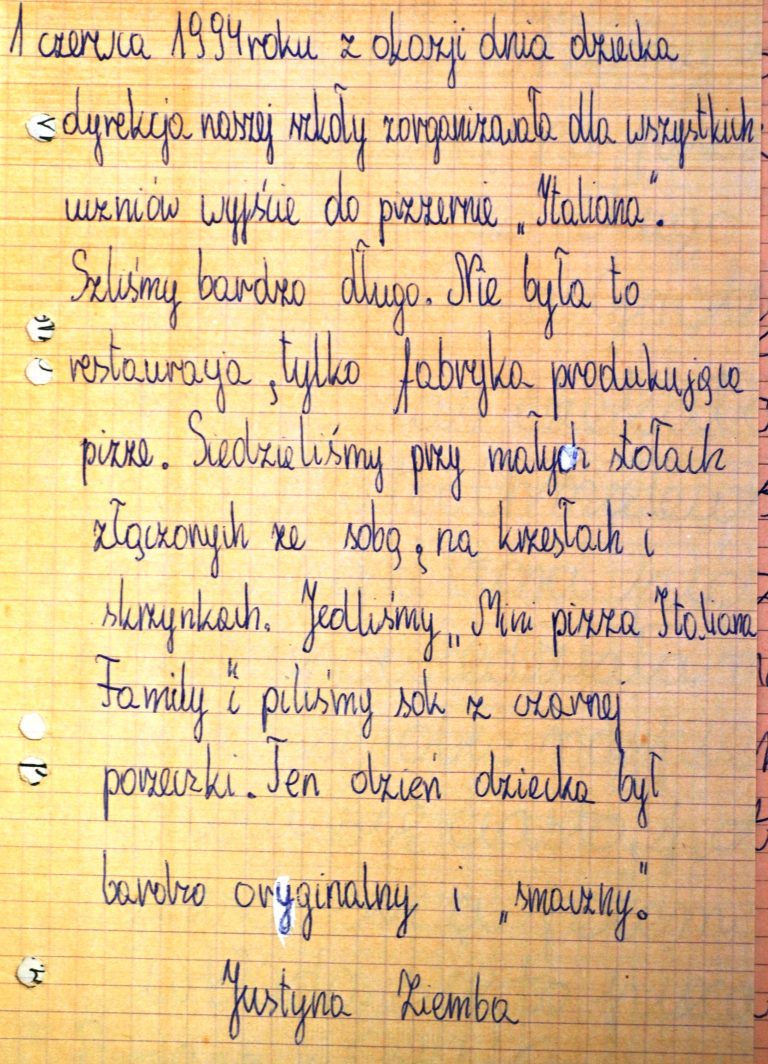 1 czerwca 1994 roku z okazji dnia dziecka
dyrekcja naszej szkoły zorganizowała dla wszystkich
uczniów wyjście do pizzernie „Italiana”.
Szliśmy bardzo długo. Nie była to
restauracja , tylko fabryka produkująca
pizze. Siedzieliśmy przy małych stołach
złączonych ze sobą , na krzesłach i
skrzynkach. Jedliśmy „Mini pizza Italiana
Family” i piliśmy sok z czarnej
porzeczki. Ten dzień dziecka był
bardzo oryginalny i „smaczny”.
Justyna Ziemba